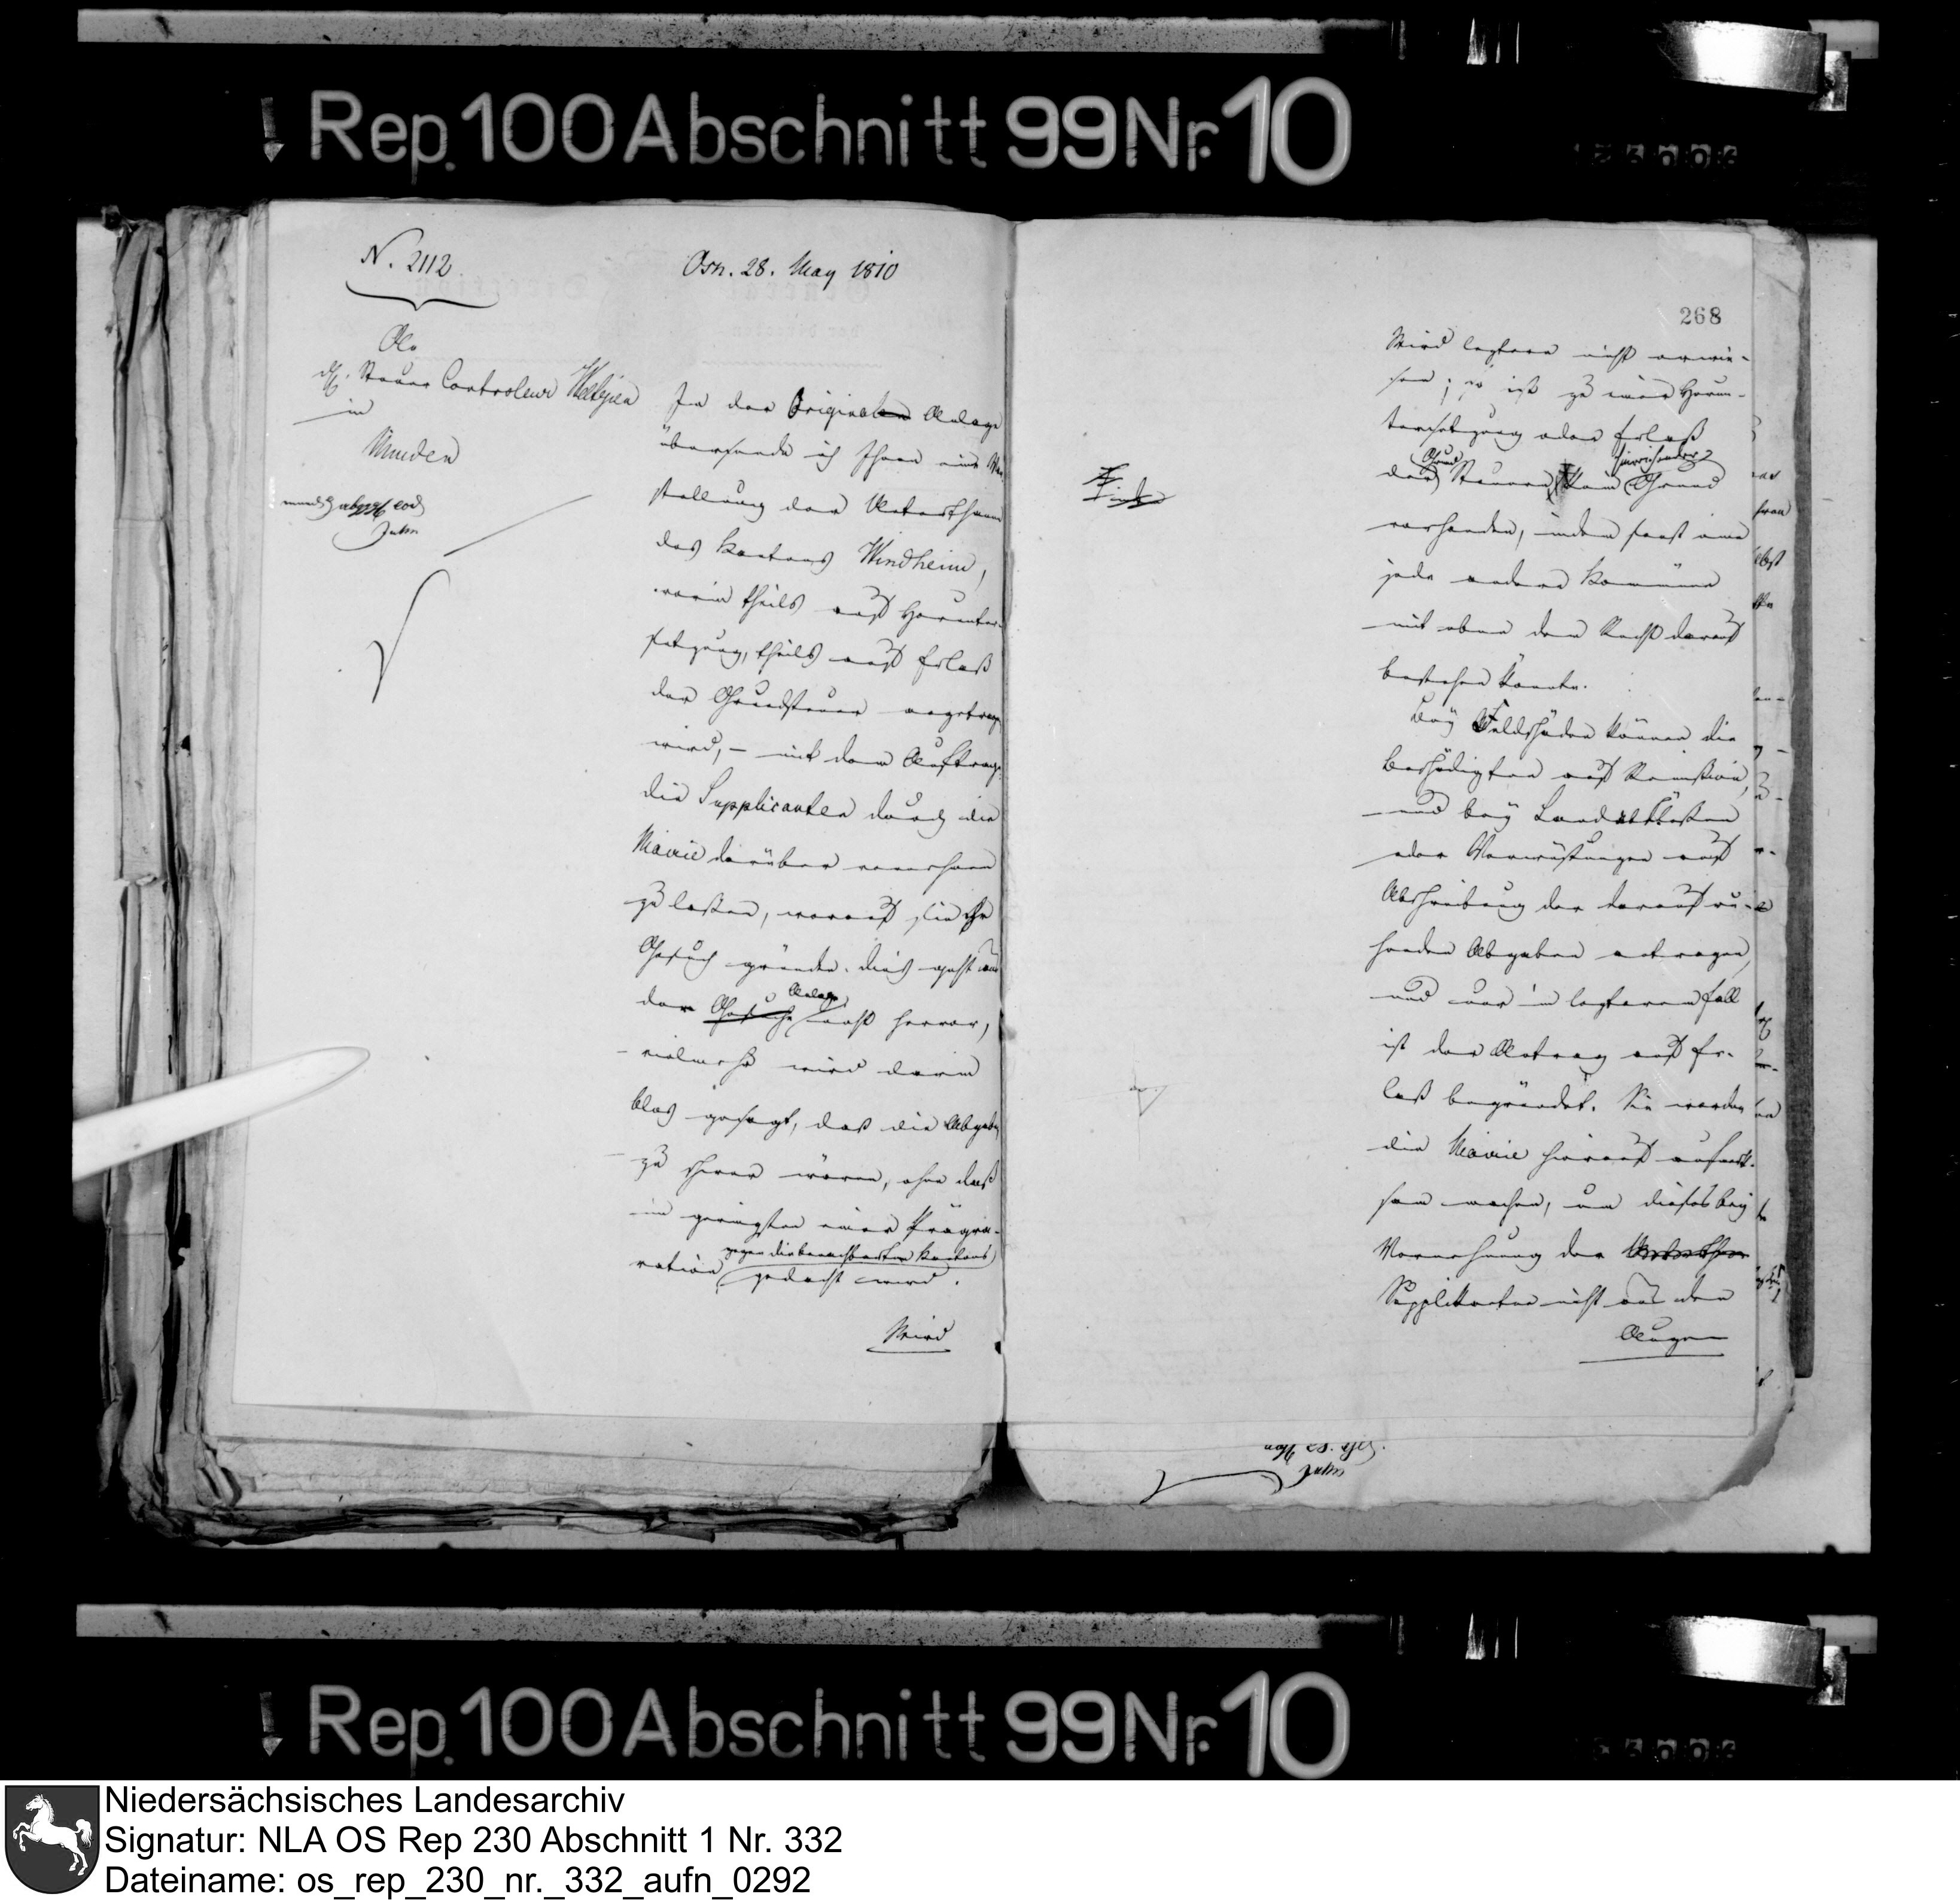 Rep. 100 Abschnitt 99 Nr. 10
N. 2112
Osn. 28. May 1810
An
Steuer Controleur
in
Minden
In der Originalen Anlage
übersende ich Ihnen eine Vor-
stellung der Unterthanen
des Kantons Windheim,
worin theils auf Herunter-
setzung, theils auf Erlaß
der Grundsteuer angetragen
wird, – mit dem Auftrage
die Supplicanten durch die
Mairie darüber vernehmen
zu laßen, worauf sie ihr
Gesuch gründen. Dies geht aus
der Gesuche Anlage nicht hervor,
vielmehr wird darin
blos gesagt, daß die Abgaben
zu schwer wären, ohne daß
im geringsten einer Prägra-
vation gegen die benachbarten Kantons gedacht wird.
Wird
268
Wird letztere nicht erwie-
sen; so ist zu einer Herun-
tersetzung oder Erlaß
der Grund Steuer kein hinreichender Grund
vorhanden, indem sonst eine
jede andere Kommüne
mit eben dem Recht darauf
bestehen könnte.
Bey Feldschäden können die
Beschädigten auf Remission,
und bey Landabflößen
oder Verwüstungen auf
Abschreibung der darauf ru-
henden Abgaben antragen,
und nur im letzteren Fall
ist der Antrag auf Er-
laß begründet. Sie werden
die Mairie hierauf aufmerk-
sam machen, um dieses bey
Vernehmung der Unterthanen
Supplikanten nicht aus den
Augen
Rep. 100 Abschnitt 99 Nr. 10
Niedersächsisches Landesarchiv
Signatur: NLA OS Rep 230 Abschnitt 1 Nr. 332
Dateiname: os_rep_230_nr._332_aufn_0292